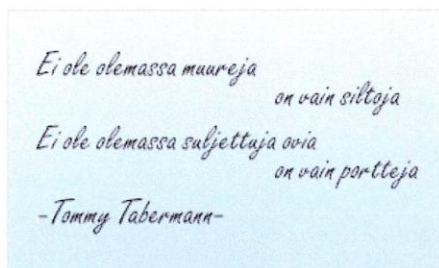 Ei ole olemassa muureja
on vain siltoja
Ei ole olemassa suljettuja ovia
on vain portteja
-Tommy Tabermann-